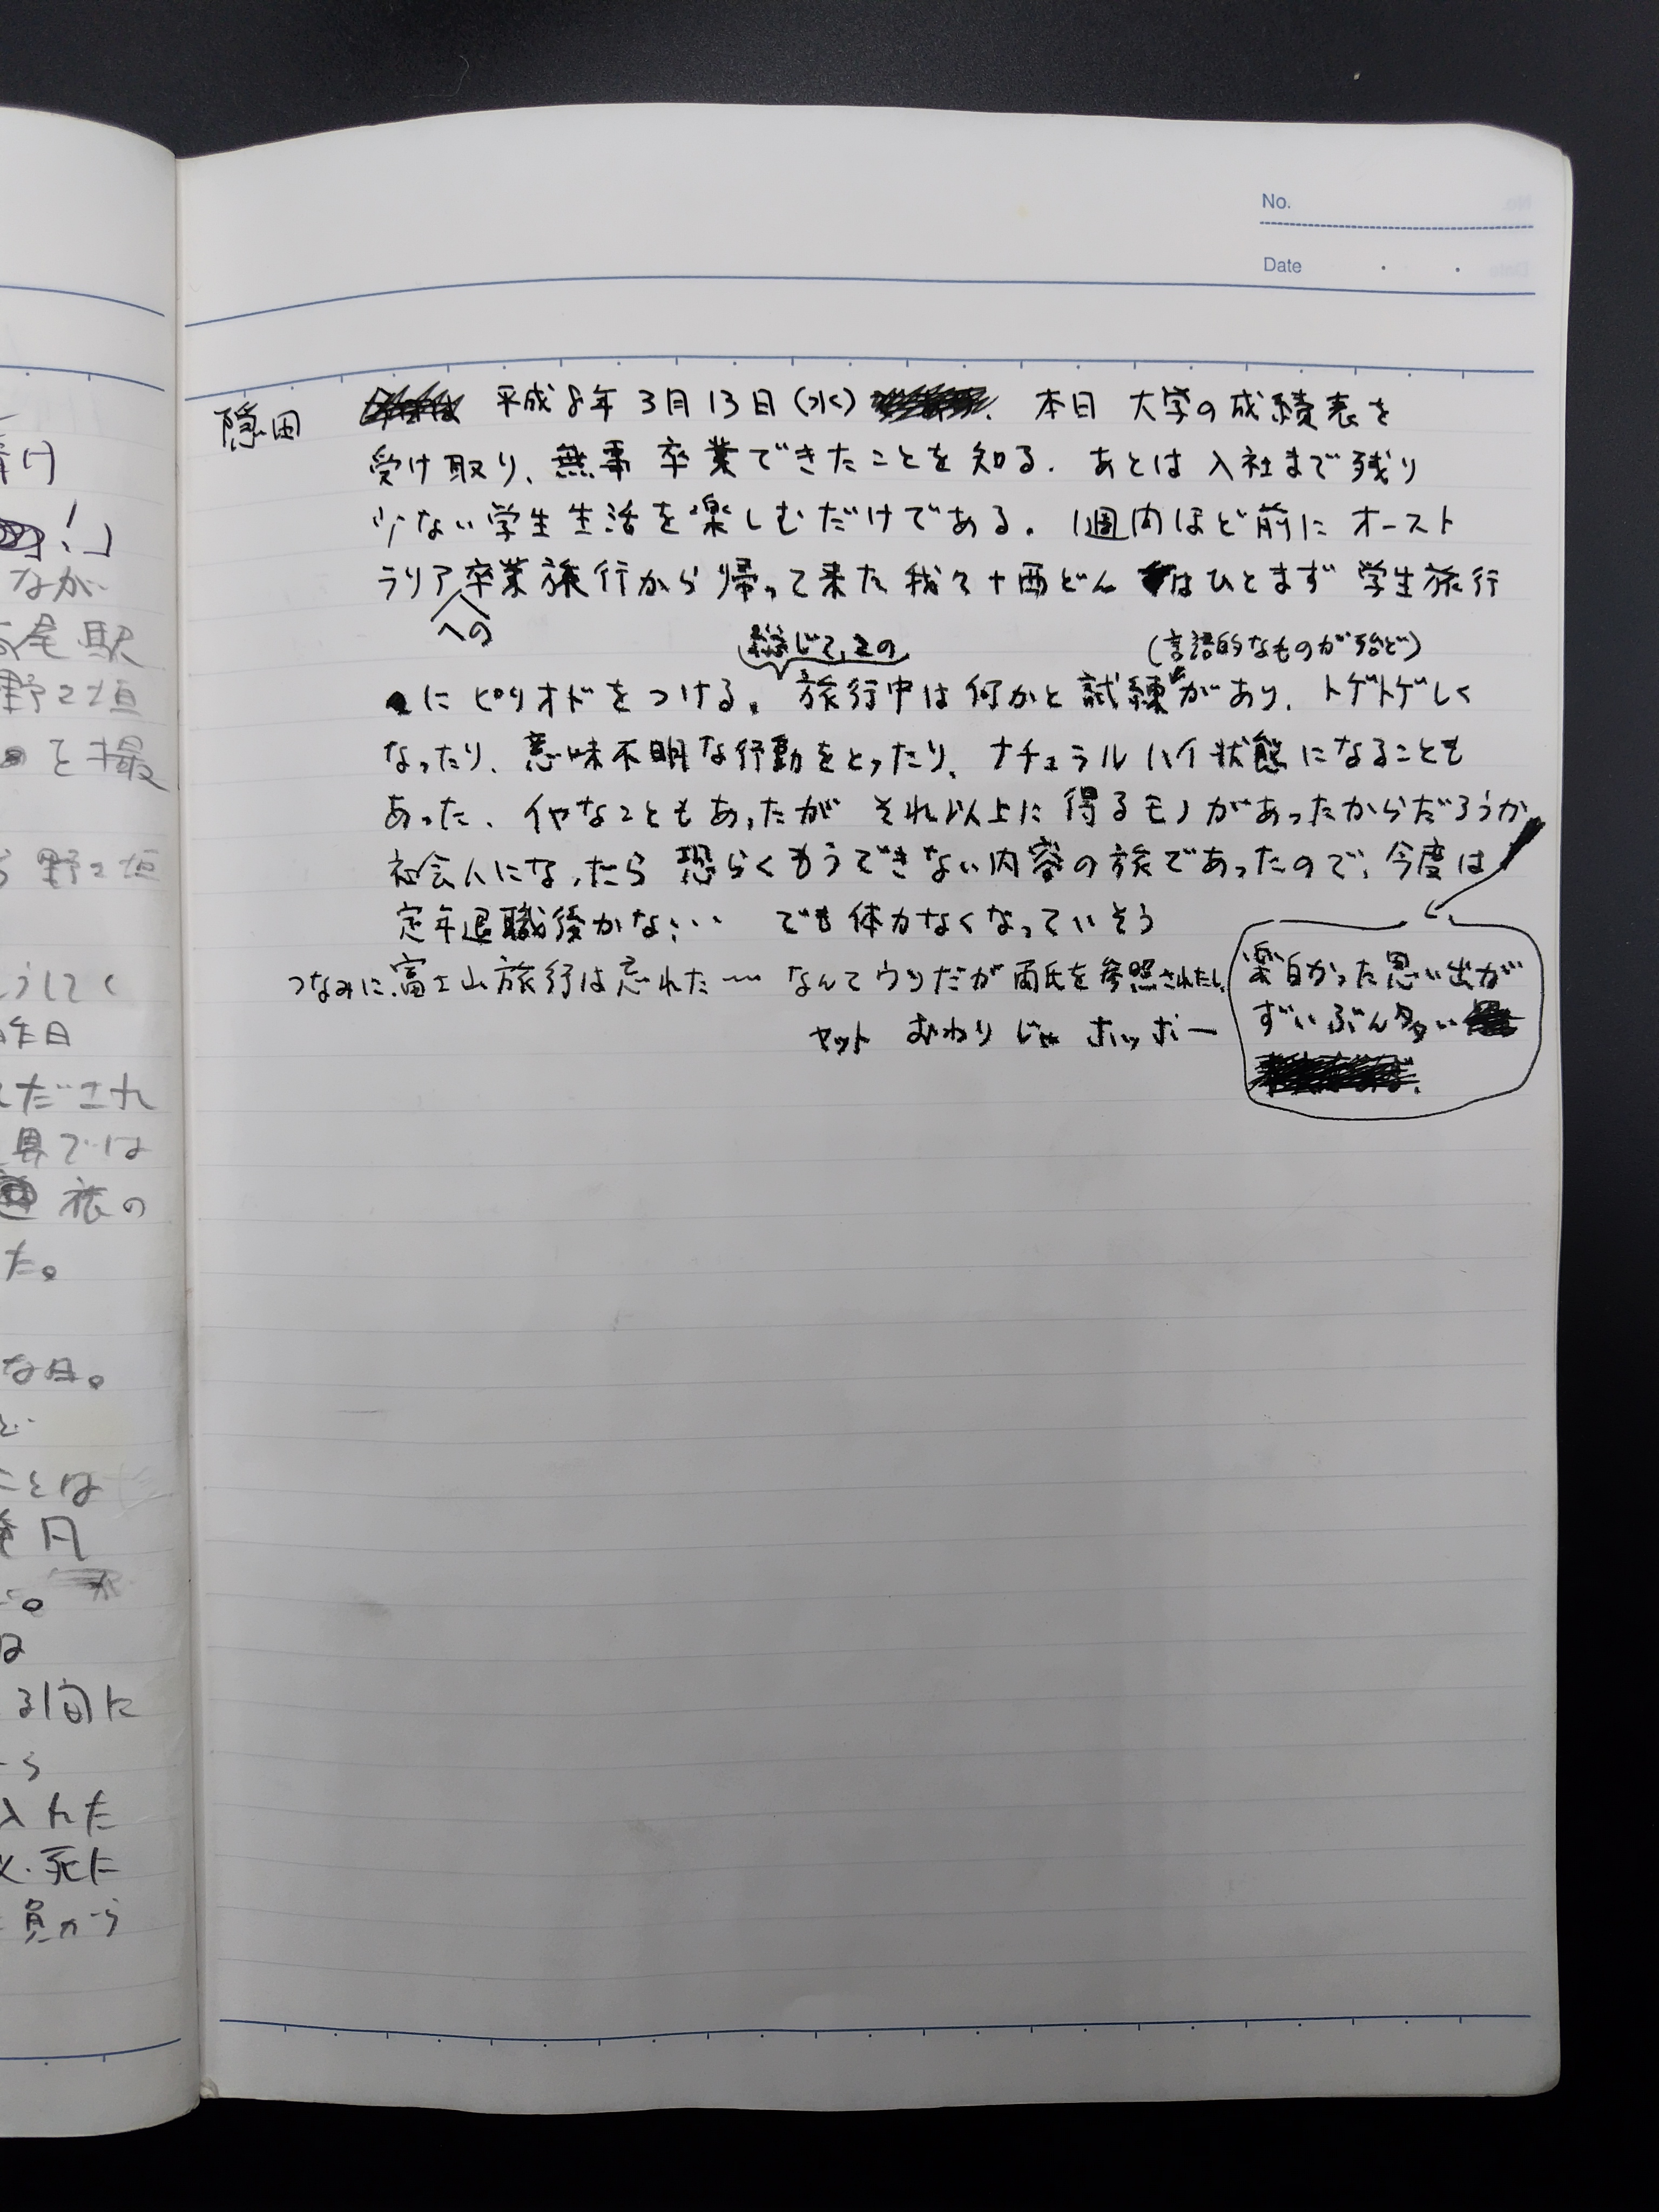 No.
Date
隠田
平成8年3月13日(水) 本日 大学の成績表を
受け取り、無事 卒業できたことを知る. あとは入社まで残り
少ない学生生活を楽しむだけである. 1週間ほど前に オースト
ラリア卒業旅行から帰って来た我々+西どん はひとまず 学生旅行
への
総じて、この
(言語的なものが殆ど)
にピリオドをつける. 旅行中は何かと試練があり、トゲトゲしく
なったり、意味不明な行動をとったり、ナチュラルハイ状態になることも
あった、イヤなこともあったが それ以上に得るモノがあったからだろうか
社会人になったら 恐らくもうできない内容の旅であったので、今度は
定年退職後かな… でも体力なくなっていそう
つなみに、富士山旅行は忘れた〜 なんてウソだが両氏を参照されたし、
面白かった思い出が
ずいぶん多い
ヤット おわり じゃ ホッホー
!」
なが
尾駅
野々垣
を撮
野々垣
うしてく
昨日
だされ
具では
旅の
た。
な日。
ことは
円
る間に
入れた
死に
員から